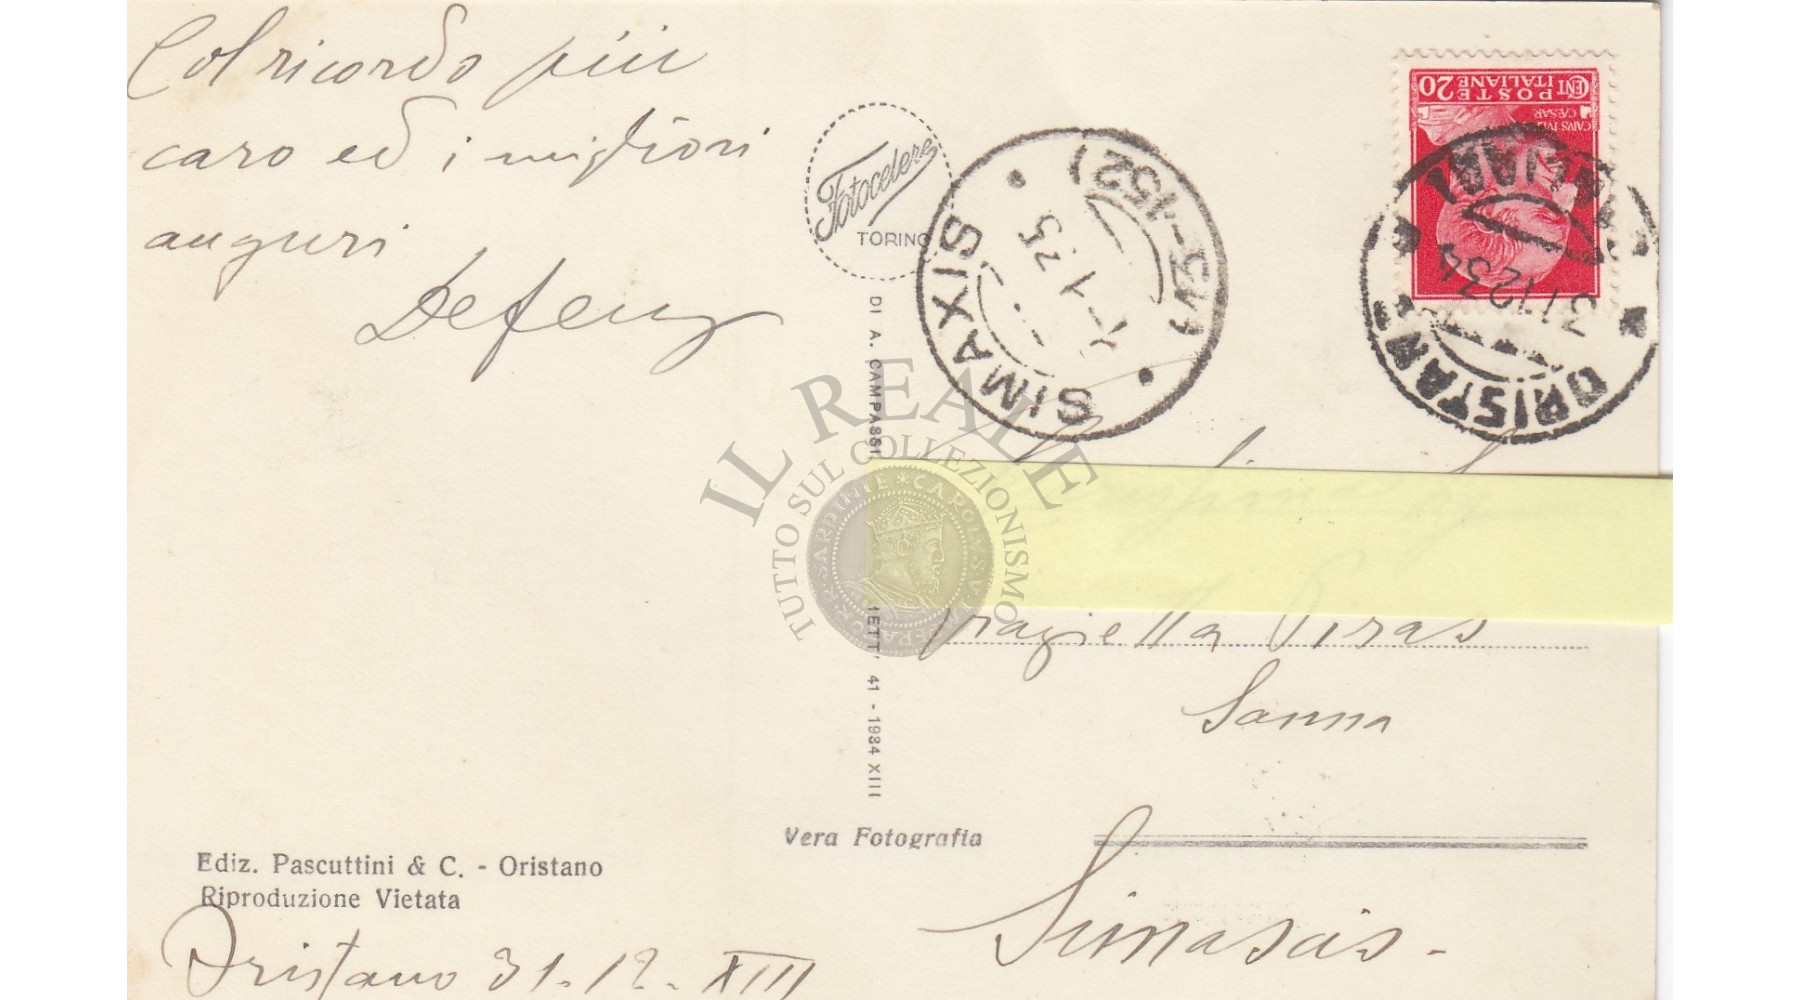 Col ricordo più
caro ed i migliori
auguri
Ediz. Pascuttini & C. - Oristano
Riproduzione Vietata
Oristano 31.12.XIII
Fotocelere
TORINO
DI A. CAMPASSI
41 - 1934 XIII
Vera Fotografia
IL REALE
TUTTO SUL COLLEZIONISMO
SIMAXIS
1-1-35
(15-152)
CENT 20
POSTE
ITALIANE
CAIVS IVLI
CÆSAR
ORISTANO
31.12.34
Graziella Piras
Sanna
Simaxis -